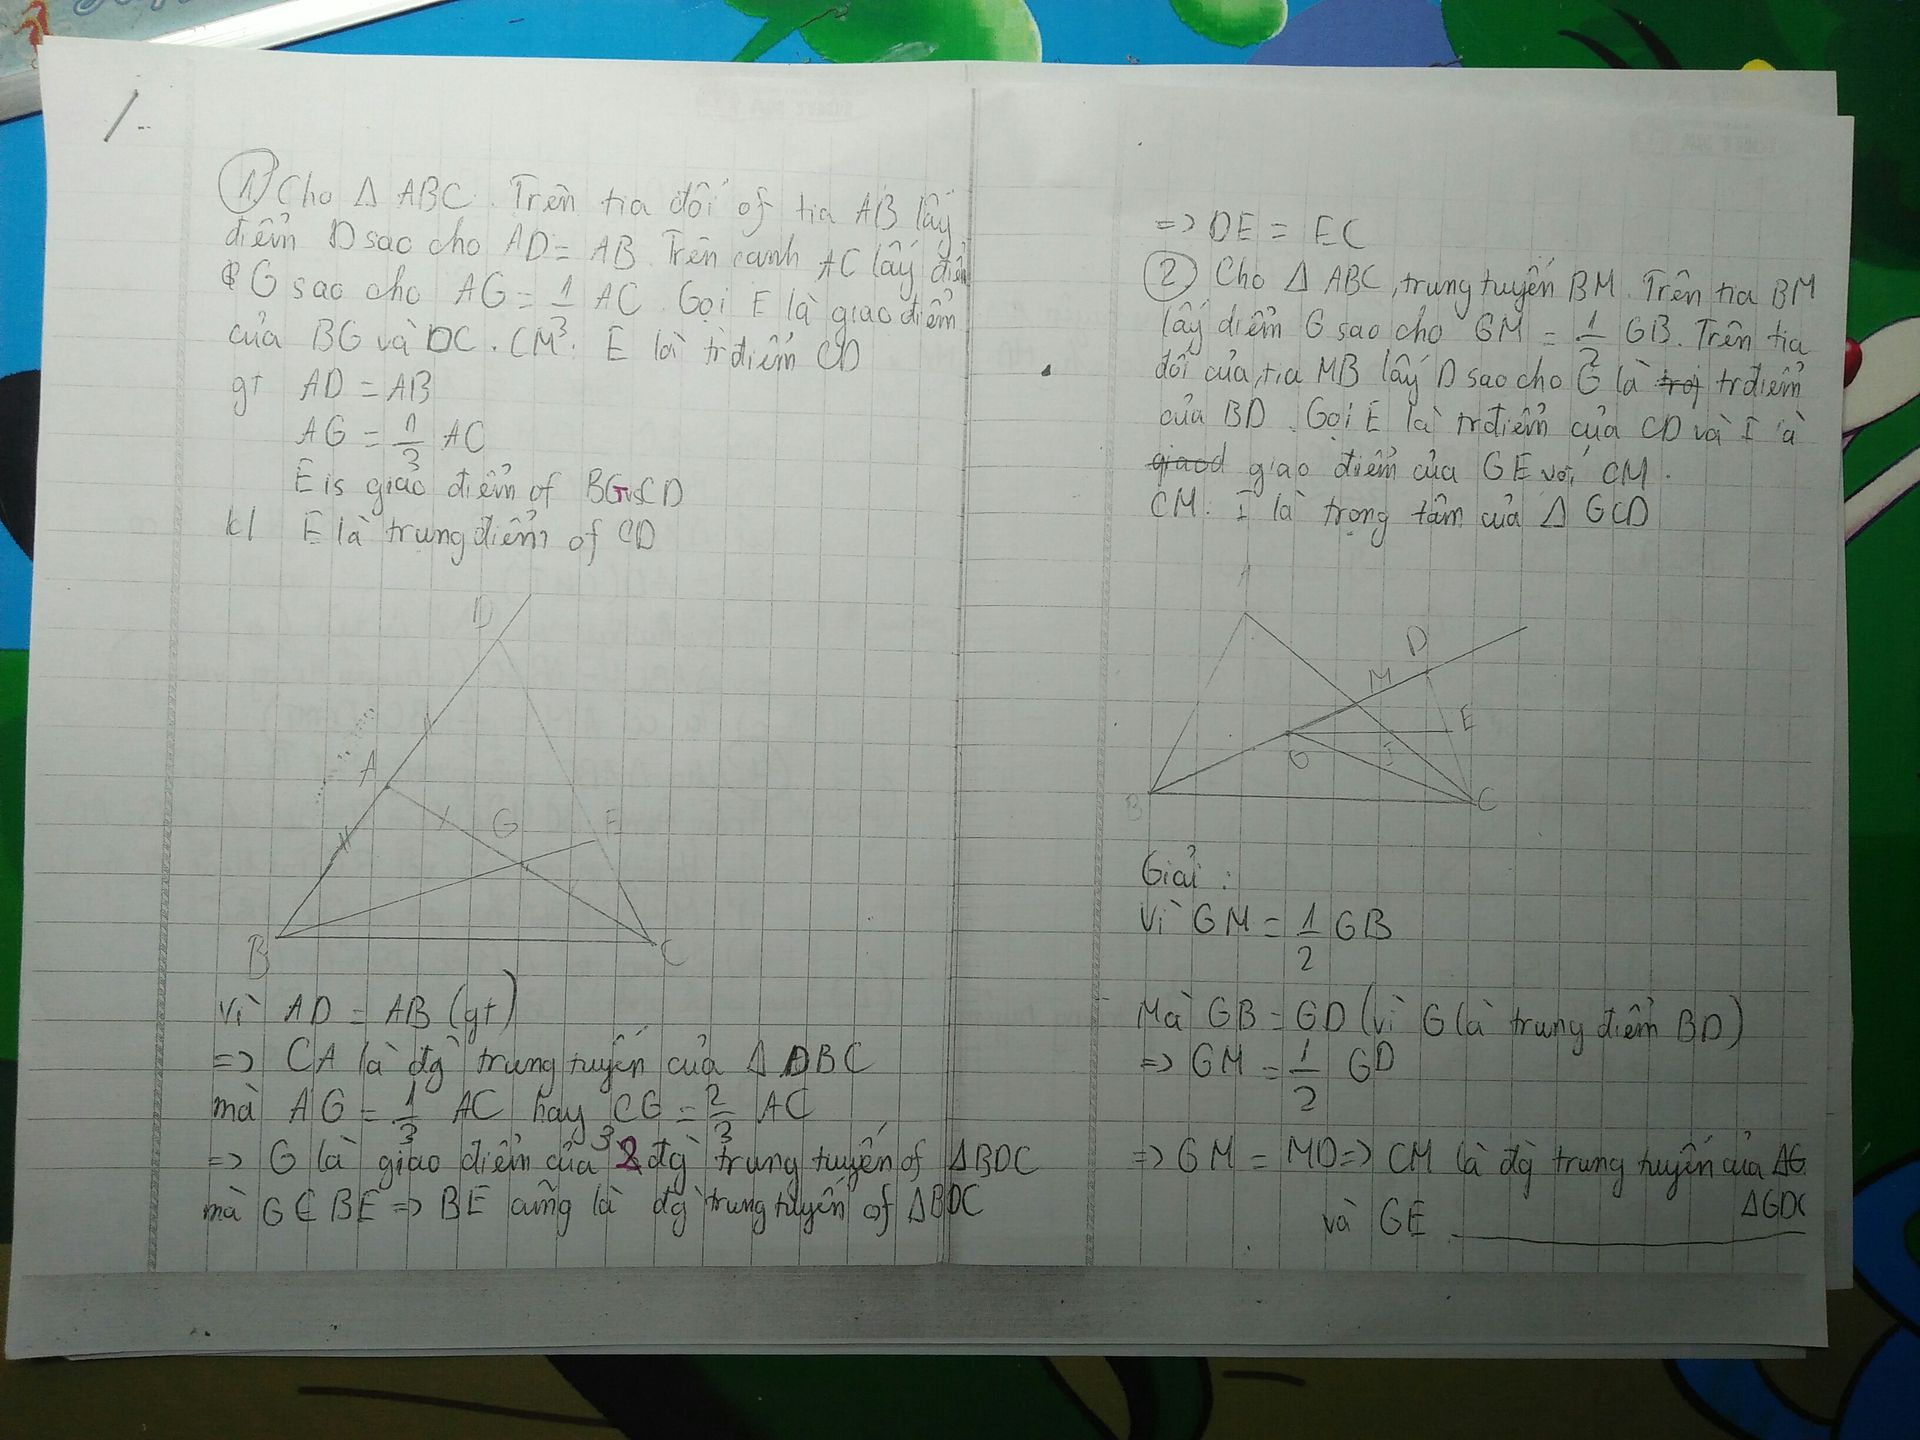 1.
① Cho Δ ABC. Trên tia đối of tia AB lấy
điểm D sao cho AD = AB. Trên cạnh AC lấy điểm
G sao cho AG = 1/3 AC. Gọi E là giao điểm
của BG và DC. CM: E là trđiểm CD
gt AD = AB
AG = 1/3 AC
E is giao điểm of BG vs CD
kl E là trung điểm of CD
D
A
G
E
B
C
Vì AD = AB (gt)
=> CA là đg trung tuyến của Δ DBC
mà AG = 1/3 AC hay CG = 2/3 AC
=> G là giao điểm của 3 đg trung tuyến of ΔBDC
mà G ∈ BE => BE cũng là đg trung tuyến of ΔBDC
=> DE = EC
② Cho Δ ABC, trung tuyến BM. Trên tia BM
lấy điểm G sao cho GM = 1/2 GB. Trên tia
đối của tia MB lấy D sao cho G là trđiểm
của BD. Gọi E là trđiểm của CD và I là
giao điểm của GE với CM.
CM: I là trọng tâm của Δ GCD
A
D
M
E
G
I
B
C
Giải:
Vì GM = 1/2 GB
Mà GB = GD (vì G là trung điểm BD)
=> GM = 1/2 GD
=> GM = MD => CM là đg trung tuyến của ΔG
ΔGDC
và GE